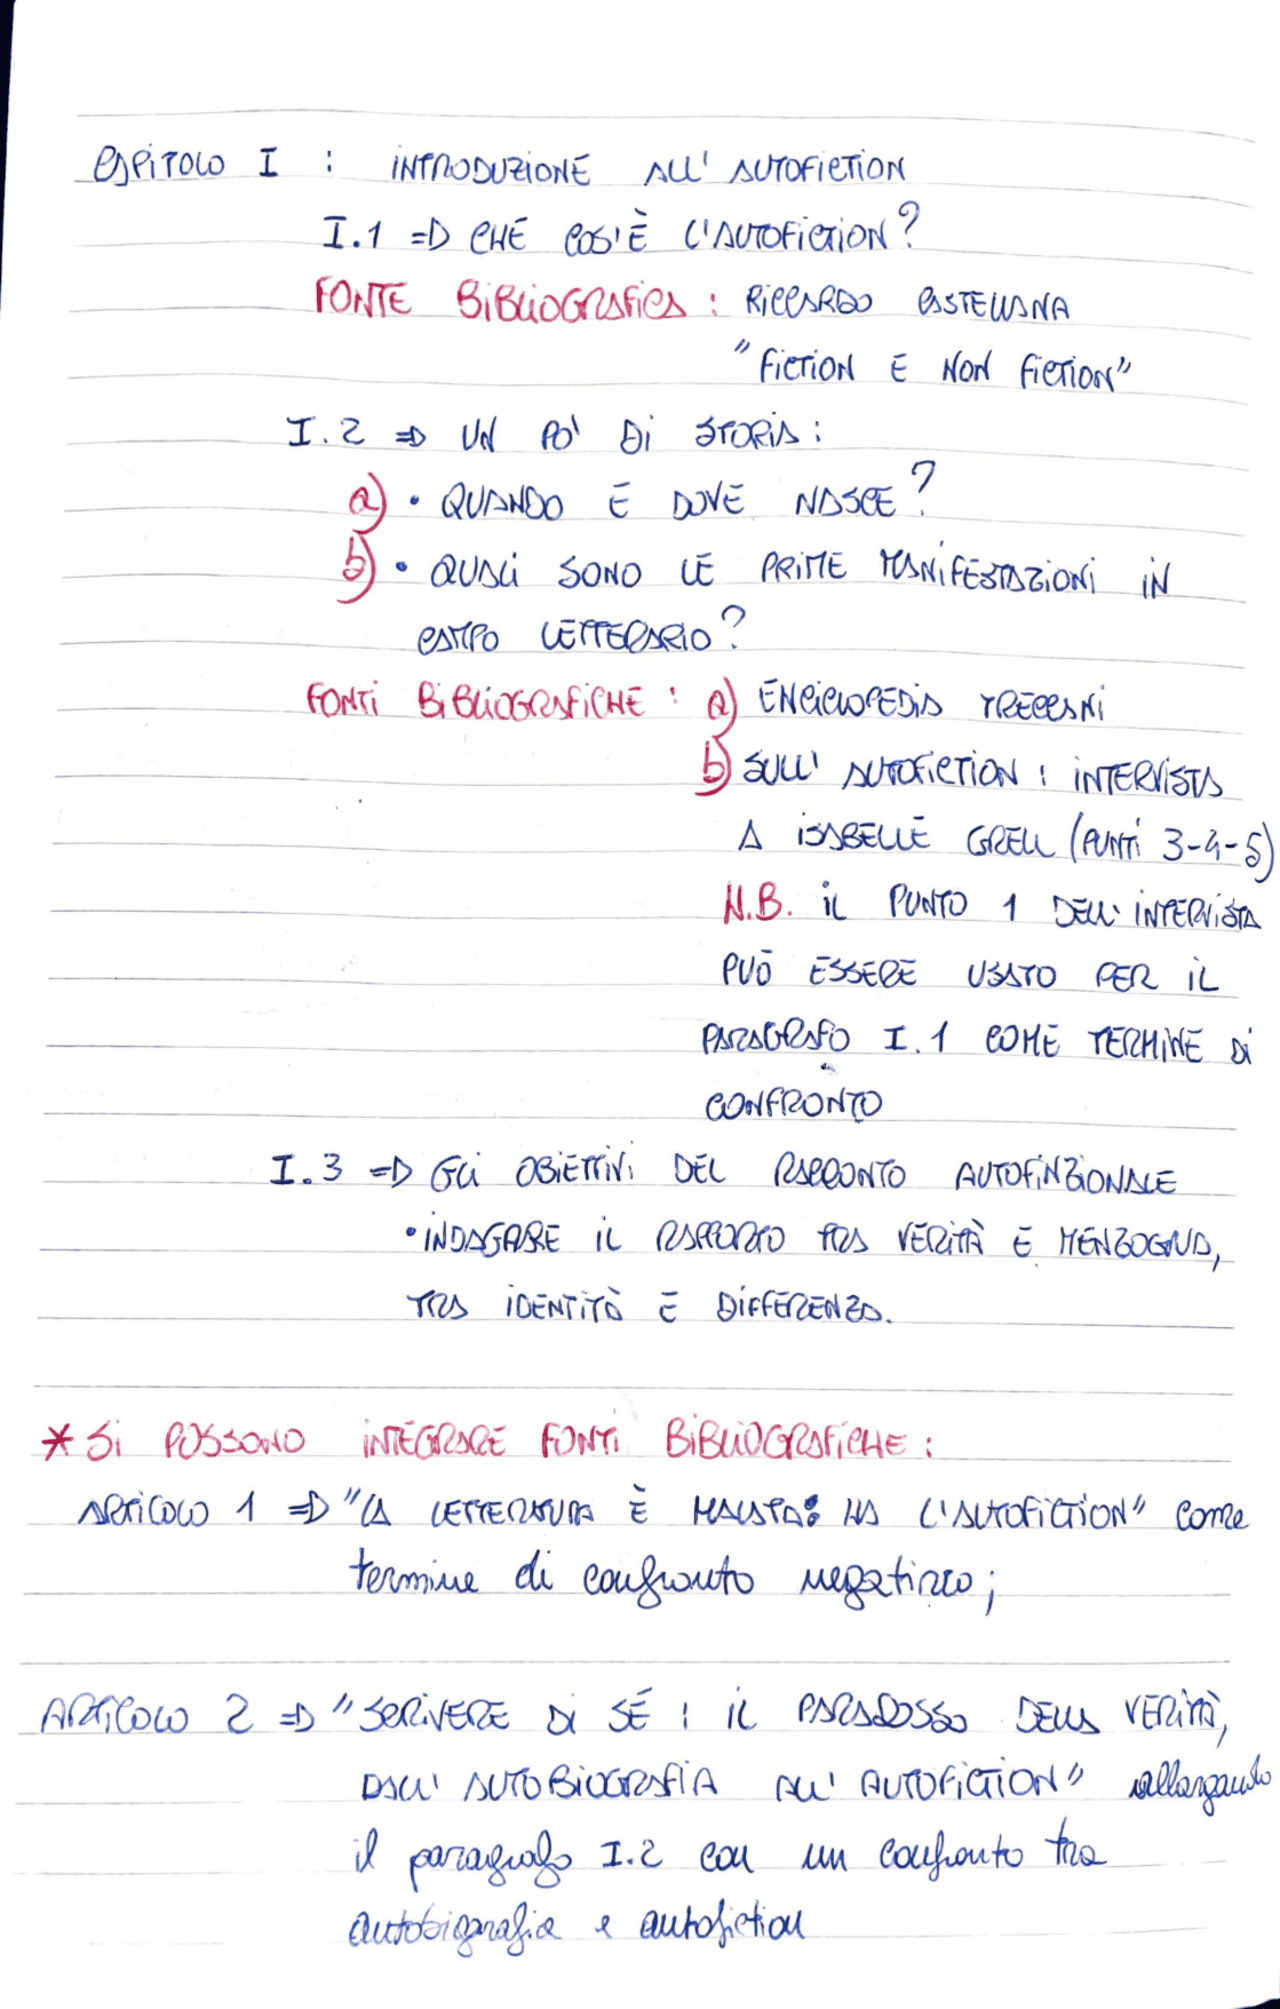 CAPITOLO I : INTRODUZIONE ALL' AUTOFICTION
I.1 => CHE COS'È L'AUTOFICTION?
FONTE BIBLIOGRAFICA : RICCARDO CASTELLANA
"FICTION E NON FICTION"
I.2 => UN PO' DI STORIA :
a) • QUANDO E DOVE NASCE?
b) • QUALI SONO LE PRIME MANIFESTAZIONI IN
CAMPO LETTERARIO?
FONTI BIBLIOGRAFICHE : a) ENCICLOPEDIA TRECCANI
b) SULL' AUTOFICTION : INTERVISTA
A ISABELLE GRELL (PUNTI 3-4-5)
N.B. IL PUNTO 1 DELL' INTERVISTA
PUÒ ESSERE USATO PER IL
PARAGRAFO I.1 COME TERMINE DI
CONFRONTO
I.3 => GLI OBIETTIVI DEL RACCONTO AUTOFINZIONALE
• INDAGARE IL RAPPORTO TRA VERITÀ E MENZOGNA,
TRA IDENTITÀ E DIFFERENZA.
* SI POSSONO INTEGRARE FONTI BIBLIOGRAFICHE :
ARTICOLO 1 => "LA LETTERATURA È MALATA: HA L'AUTOFICTION" come
termine di confronto negativo;
ARTICOLO 2 => "SCRIVERE DI SÉ : IL PARADOSSO DELLA VERITÀ,
DALL' AUTOBIOGRAFIA ALL' AUTOFICTION" allargando
il paragrafo I.2 con un confronto tra
autobigrafia e autofiction